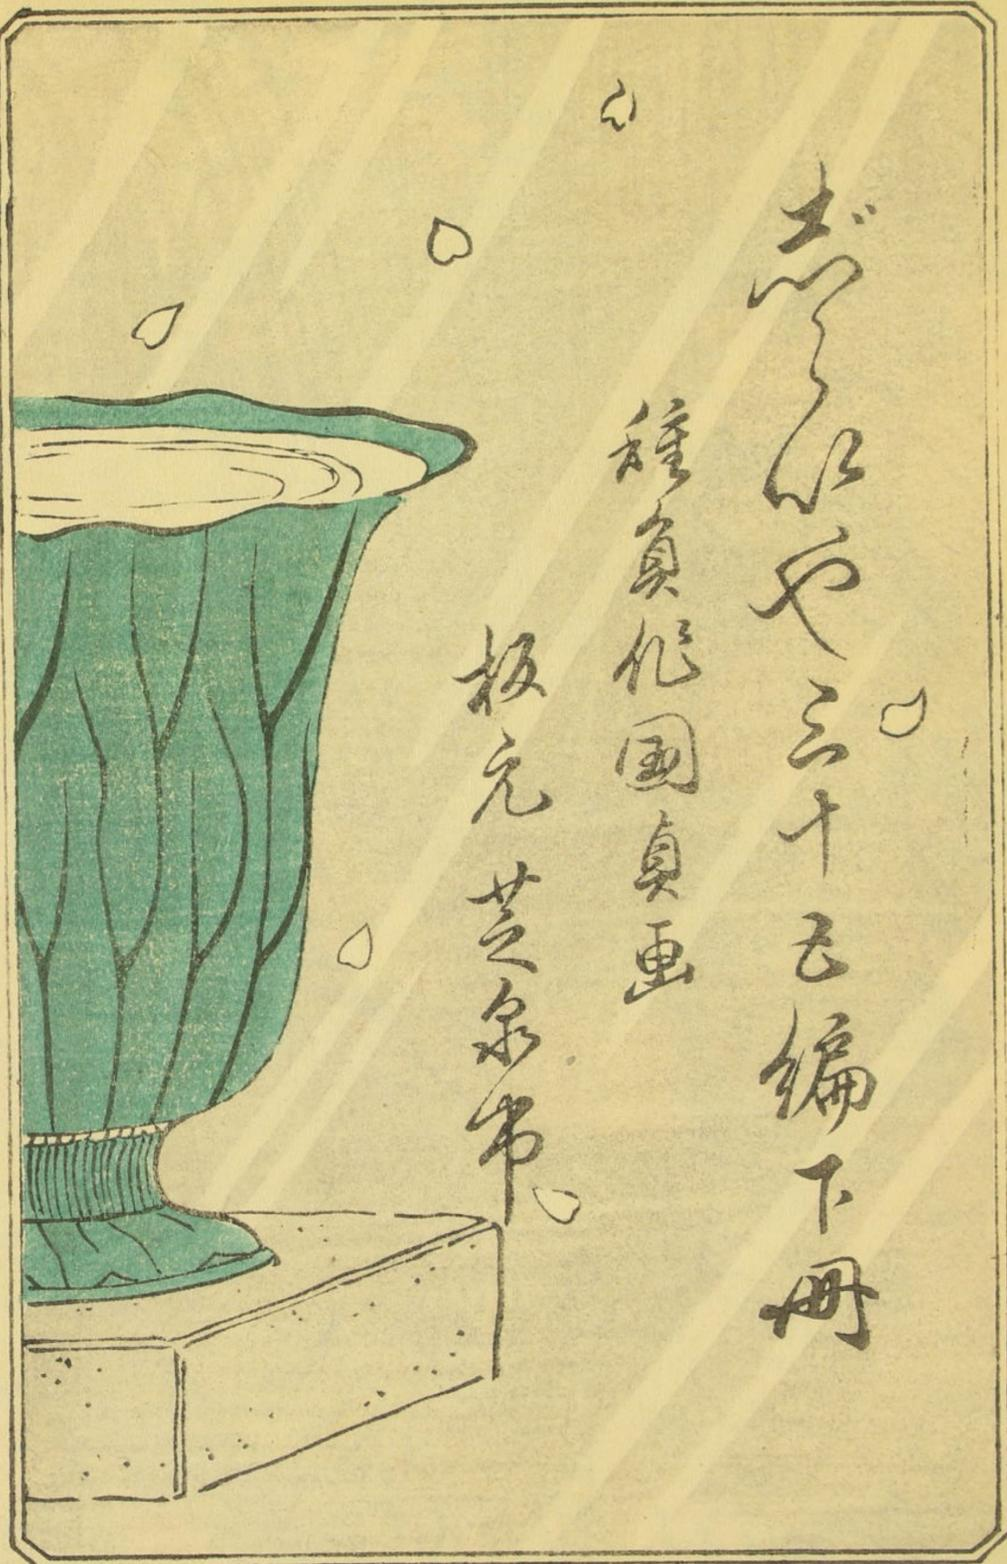 じらいや三十五編下冊
種員作国貞画
板元 芝泉市